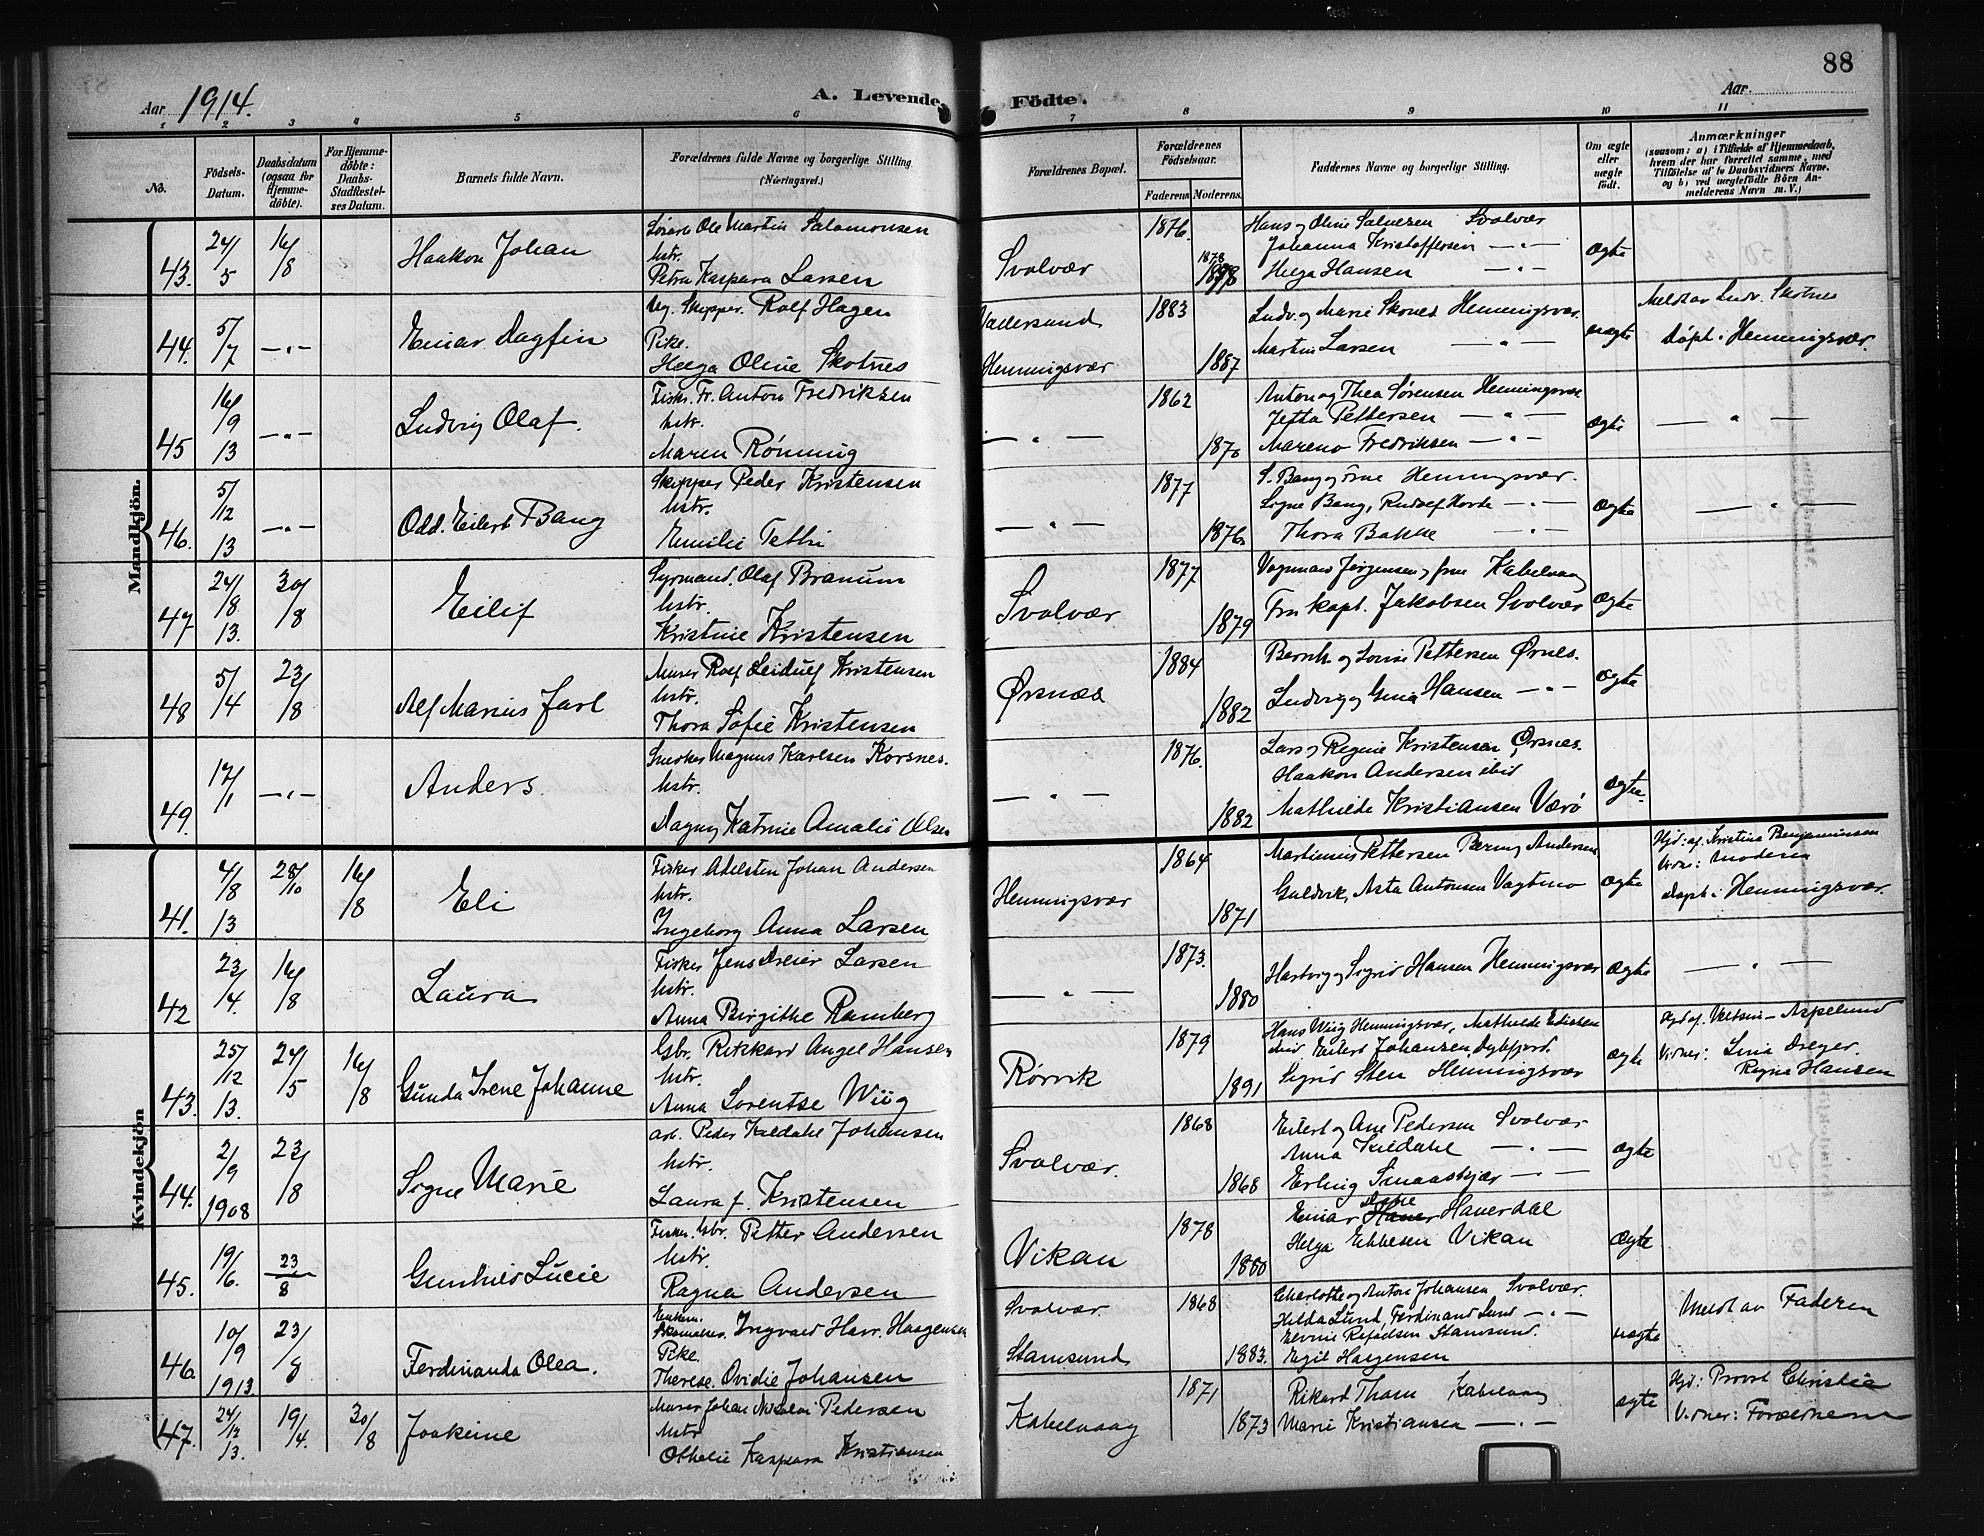 88
Aar 1914.
A. Levende Födte.
Aar
1 2 3 4 5 6 7 8 9 10 11
No.
Födsels-Datum.
Daabsdatum (ogsaa for Hjemmedöbte).
For Hjemmedöbte: Daabs-Stadfæstelses Datum.
Barnets fulde Navn.
Forældrenes fulde Navne og borgerlige Stilling. (Næringsvei.)
Forældrenes Bopæl.
Forældrenes Födselsaar.
Faderens. Moderens.
Faddernes Navne og borgerlige Stilling.
Om ægte eller uægte födt.
Anmærkninger (saasom: a) i Tilfælde af Hjemmedaab, hvem der har forrettet samme, med Tilföielse af to Daabsvidners Navne, og b) ved uægtefödte Börn Anmelderens Navn m. V.)
Mandkjön.
43. 24/5 16/8 Haakon Johan
Ole Martin Salomonsen
hstr.
Petra Kaspara Larsen
Svolvær 1876. 1878
Hans og Oline Salvesen Svolvær
Johanna Kristoffersen —"—
Helga Hansen —"—
ægte
44. 5/7 —"— Einar Dagfin
Ug. Skipper. Rolf Hagen
Pike.
Helga Oline Skotnes
Hemmingsvær 1883 1887
Ludv. og Marie Skones Hemmingsvær.
Martin Larsen —"—
uægte
Meldt av Ludv. Skotnes
Døpt i Hemmingsvær.
45 16/9 13 —"— Ludvig Olaf.
Fisker. Fr. Anton Fredriksen
hstr.
Maren Rönning
—"— 1862 1870
Anton og Thea Sørensen Hemmingsvær
Jetta Pettersen —"—
Mareno Fredriksen —"—
ægte —"—
46. 5/12 13 —"— Odd. Eilert Bang
Skipper Peder Kristensen
hstr.
Emilie
—"— 1877 1876
S. Bang og frue Hemmingsvær.
Signe Bang, —"—
Thora Bakke —"—
ægte —"—
47 24/8 13. 30/8 Eilif
Styrmand. Olaf Branum
hstr.
Kristine Kristensen
Svolvær 1877 1879
Vognmand Jørgensen, frue Kabelvaag
Fru kapt. Jakobsen Svolvær
ægte
48 5/4 23/8 Alf Marius Jarl
Murer Rolf Leidulf Kristensen
hstr.
Thora Sofie Kristensen
Ørsnæs 1884 1882
Bernh. og Lovise Pettersen Ørnes.
Ludvig og Gina Hansen —"—
ægte
49. 17/1 —"— Anders.
Snedker Magnus Karlsen Korsnes.
hstr.
Dagny Katrine Amalie Olsen
—"— 1876. 1882
Lars og Regine Kristensen Ørsnes.
Haakon Andersen ibid
Mathilde Kristiansen Værö
ægte.
Kvindekjön
41. 4/8 13 28/10 16/8 Eli
Fisker Adelsten Johan Andersen
hstr.
Ingeborg Anna Larsen
Hemmingsvær 1864 1871
Martinus Pettersen Berny Andersen
Guldvik, Asta Antonsen
ægte
Hjd: af. Kristine Benjaminsen
Vidner: Moderen
Døpt i Hemmingsvær.
42 23/4. 16/8 Laura
Fisker Jens Dreier Larsen
hstr.
Anna Birgitte Ramberg
—"— 1873. 1880
Hartvig og Sigrid Hansen Hemmingsvær
ægte —"—
43. 25/12 13. 24/5 16/8 Gunda Irene Johanne
Gbr. Rikkard Angel Hansen
hstr.
Anna Lorentse Wiig
Rörvik 1879 1891
Hans Wiig Hemmingsvær, Mathilde
ibid Eilert Johansen, Dybfjord.
Sigrid Sten Hemmingsvær
ægte
Hjd af. Aspelund
Vidner: Lina Dreyer.
Ragna Hansen
44. 2/9 1908 23/8 Signe Marie
Arb. Peder Kildahl Johansen
hstr.
Laura J. Kristensen
Svolvær. 1868 1868
Eilert og Ane Pedersen Svolvær
Anna Kildahl —"—
Erling —"—
ægte
45. 19/6. 23/8 Lucie
Fisker. Gbr. Petter Andersen
hstr.
Ragna Andersen
Vikan 1878 1880
Einar Haverdal
Helga Ebbesen Vikan
ægte
46. 10/9 1913. 23/8 Ferdinanda Olea.
Ingvald Haagensen
Pike.
Therese. Ovidie Johansen
Svolvær. Stamsund 1868 1883.
Charlotte og Anton Johansen Svolvær.
Hilda Lund, Ferdinand Lund —"—
Stamsund.
Egil Haagensen
uægte
Meldt av Faderen
47. 24/12 13. 19/4. 30/8 Joakime
Murer Johan Nikolai Pedersen
hstr
Othelie Kaspara Kristiansen
Kabelvaag 1871 1873
Rikard Thom Kabelvaag
Marie Kristiansen —"—
ægte
Hjd: Provst Christie
Vidner: Forældrene